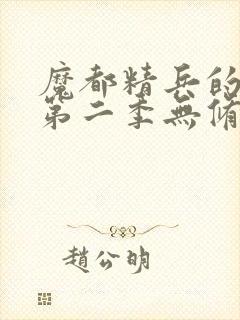 魔都精兵的
第二季無脩
趙公明